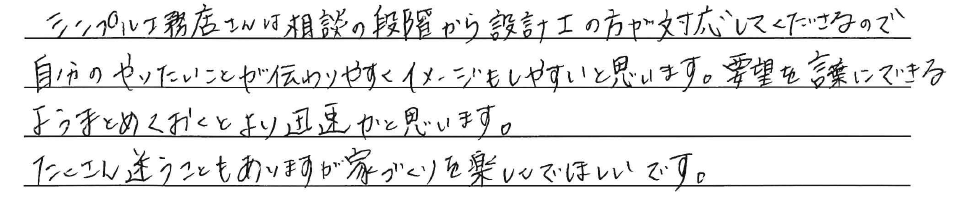 シンプル工務店さんは相談の段階から設計士の方が対応してくださるので
自分のやりたいことが伝わりやすくイメージもしやすいと思います。要望を言葉にできる
ようまとめておくとより迅速かと思います。
たくさん迷うこともありますが家づくりを楽しんでほしいです。